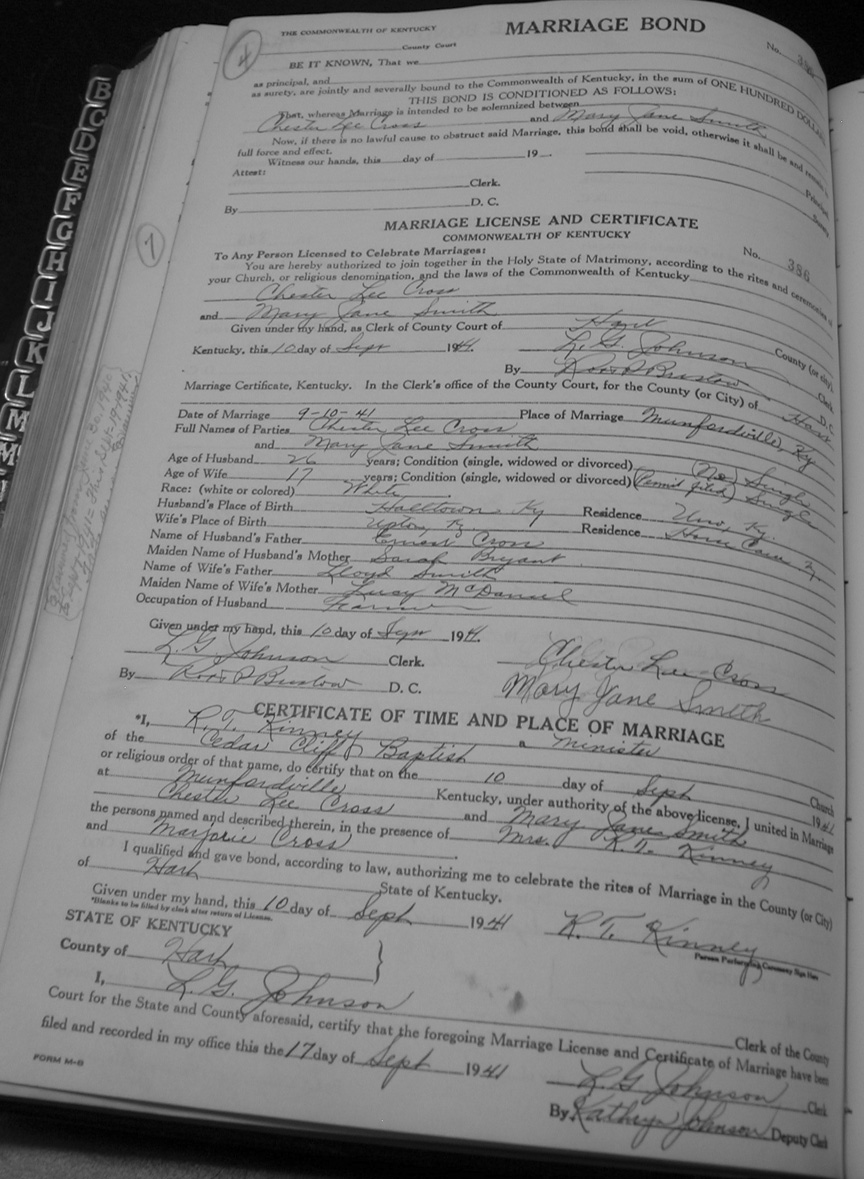 B
C
D
E
F
G
H
I
J
K
L
M
4
THE COMMONWEALTH OF KENTUCKY
MARRIAGE BOND
County Court
No. 386
BE IT KNOWN, That we
as principal, and
as surety, are jointly and severally bound to the Commonwealth of Kentucky, in the sum of ONE HUNDRED DOLLARS
THIS BOND IS CONDITIONED AS FOLLOWS:
That, whereas Marriage is intended to be solemnized between
Chester Lee Cross and Mary Jane Smith
Now, if there is no lawful cause to obstruct said Marriage, this bond shall be void, otherwise it shall be and remain in
full force and effect.
Witness our hands, this day of 19
Attest:
Clerk.
Principal
By D. C.
Surety
7
MARRIAGE LICENSE AND CERTIFICATE
COMMONWEALTH OF KENTUCKY
No. 386
To Any Person Licensed to Celebrate Marriages:
You are hereby authorized to join together in the Holy State of Matrimony, according to the rites and ceremonies of
your Church, or religious denomination, and the laws of the Commonwealth of Kentucky
Chester Lee Cross
and Mary Jane Smith
Given under my hand, as Clerk of County Court of Hart County (or city)
Kentucky, this 10 day of Sept 1941 L. G. Johnson Clerk
By D. C.
Marriage Certificate, Kentucky. In the Clerk's office of the County Court, for the County (or City) of Hart
Date of Marriage 9-10-41 Place of Marriage Munfordville, Ky
Full Names of Parties Chester Lee Cross
and Mary Jane Smith
Age of Husband 26 years; Condition (single, widowed or divorced) Single
Age of Wife 17 years; Condition (single, widowed or divorced) (Permit filed) Single
Race: (white or colored) White
Husband's Place of Birth Halltown Ky Residence Uno, Ky.
Wife's Place of Birth Upton, Ky Residence Horse Cave
Name of Husband's Father Ernest Cross
Maiden Name of Husband's Mother Sarah Bryant
Name of Wife's Father Lloyd Smith
Maiden Name of Wife's Mother Lucy McDaniel
Occupation of Husband Farmer
Given under my hand, this 10 day of Sept 1941.
L G Johnson Clerk. Chester Lee Cross
By D. C. Mary Jane Smith
CERTIFICATE OF TIME AND PLACE OF MARRIAGE
*I, R. T. Kinney a minister
of the Cedar Cliff Baptist Church
or religious order of that name, do certify that on the 10 day of Sept 1941
at Munfordville Kentucky, under authority of the above license, I united in Marriage
Chester Lee Cross and Mary Jane Smith
the persons named and described therein, in the presence of Mrs. R. T. Kinney
and Marjorie Cross
I qualified and gave bond, according to law, authorizing me to celebrate the rites of Marriage in the County (or City)
of Hart State of Kentucky.
Given under my hand, this 10 day of Sept 1941 R. T. Kinney
*Blanks to be filled by clerk after return of License.
Person Performing Ceremony Sign Here
STATE OF KENTUCKY
County of Hart
I, L. G. Johnson Clerk of the County
Court for the State and County aforesaid, certify that the foregoing Marriage License and Certificate of Marriage have been
filed and recorded in my office this the 17 day of Sept 1941
L G Johnson Clerk
By Kathryn Johnson Deputy Clerk
FORM M-6